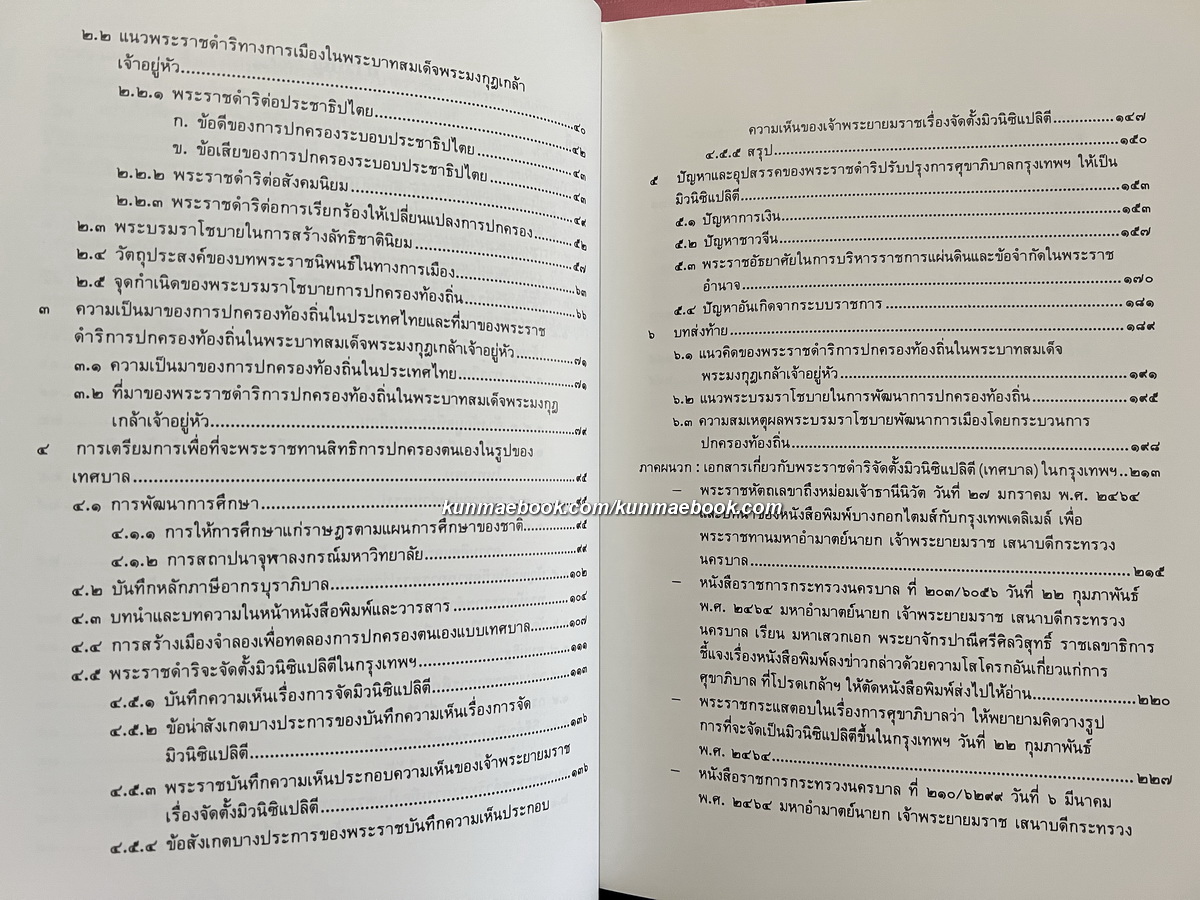 ๒.๒ แนวพระราชดำริทางการเมืองในพระบาทสมเด็จพระมงกุฎเกล้า
เจ้าอยู่หัว....................๔๐
๒.๒.๑ พระราชดำริต่อประชาธิปไตย....................๔๒
ก. ข้อดีของการปกครองระบอบประชาธิปไตย....................๔๓
ข. ข้อเสียของการปกครองระบอบประชาธิปไตย....................๔๓
๒.๒.๒ พระราชดำริต่อสังคมนิยม....................๔๙
๒.๒.๓ พระราชดำริต่อการเรียกร้องให้เปลี่ยนแปลงการปกครอง..........๕๒
๒.๓ พระบรมราโชบายในการสร้างลัทธิชาตินิยม....................๕๗
๒.๔ วัตถุประสงค์ของบทพระราชนิพนธ์ในทางการเมือง....................๖๓
๒.๕ จุดกำเนิดของพระบรมราโชบายการปกครองท้องถิ่น....................๖๖
๓ ความเป็นมาของการปกครองท้องถิ่นในประเทศไทยและที่มาของพระราช
ดำริการปกครองท้องถิ่นในพระบาทสมเด็จพระมงกุฎเกล้าเจ้าอยู่หัว..........๗๑
๓.๑ ความเป็นมาของการปกครองท้องถิ่นในประเทศไทย....................๗๑
๓.๒ ที่มาของพระราชดำริการปกครองท้องถิ่นในพระบาทสมเด็จพระมงกุฎ
เกล้าเจ้าอยู่หัว....................๗๙
๔ การเตรียมการเพื่อที่จะพระราชทานสิทธิการปกครองตนเองในรูปของ
เทศบาล....................๙๕
๔.๑ การพัฒนาการศึกษา....................๙๕
๔.๑.๑ การให้การศึกษาแก่ราษฎรตามแผนการศึกษาของชาติ..........๙๕
๔.๑.๒ การสถาปนาจุฬาลงกรณ์มหาวิทยาลัย....................๙๙
๔.๒ บันทึกหลักภาษีอากรบุราภิบาล....................๑๐๒
๔.๓ บทนำและบทความในหน้าหนังสือพิมพ์และวารสาร....................๑๐๔
๔.๔ การสร้างเมืองจำลองเพื่อทดลองการปกครองตนเองแบบเทศบาล..........๑๐๗
๔.๕ พระราชดำริจะจัดตั้งมิวนิซิแปลิตีในกรุงเทพฯ....................๑๑๑
๔.๕.๑ บันทึกความเห็นเรื่องการจัดมิวนิซิแปลิตี....................๑๑๓
๔.๕.๒ ข้อน่าสังเกตบางประการของบันทึกความเห็นเรื่องการจัด
มิวนิซิแปลิตี....................๑๓๖
๔.๕.๓ พระราชบันทึกความเห็นประกอบความเห็นของเจ้าพระยายมราช
เรื่องจัดตั้งมิวนิซิแปลิตี....................๑๓๖
๔.๕.๔ ข้อสังเกตบางประการของพระราชบันทึกความเห็นประกอบ
ความเห็นของเจ้าพระยายมราชเรื่องจัดตั้งมิวนิซิแปลิตี....................๑๔๗
๔.๕.๕ สรุป....................๑๕๐
๕ ปัญหาและอุปสรรคของพระราชดำริปรับปรุงการศุขาภิบาลกรุงเทพฯ ให้เป็น
มิวนิซิแปลิตี....................๑๕๓
๕.๑ ปัญหาการเงิน....................๑๕๓
๕.๒ ปัญหาชาวจีน....................๑๕๗
๕.๓ พระราชอัธยาศัยในการบริหารราชการแผ่นดินและข้อจำกัดในพระราช
อำนาจ....................๑๗๐
๕.๔ ปัญหาอันเกิดจากระบบราชการ....................๑๘๑
๖ บทส่งท้าย....................๑๘๙
๖.๑ แนวคิดของพระราชดำริการปกครองท้องถิ่นในพระบาทสมเด็จ
พระมงกุฎเกล้าเจ้าอยู่หัว....................๑๙๑
๖.๒ แนวพระบรมราโชบายในการพัฒนาการปกครองท้องถิ่น....................๑๙๕
๖.๓ ความสมเหตุผลพระบรมราโชบายพัฒนาการเมืองโดยกระบวนการ
ปกครองท้องถิ่น....................๑๙๘
ภาคผนวก : เอกสารเกี่ยวกับพระราชดำริจัดตั้งมิวนิซิแปลิตี (เทศบาล) ในกรุงเทพฯ..๒๑๓
– พระราชหัตถเลขาถึงหม่อมเจ้าธานีนิวัต วันที่ ๒๗ มกราคม พ.ศ. ๒๔๖๔
kunmaebook.com/kunmaebook.com
และบทนำของหนังสือพิมพ์บางกอกไตมส์กับกรุงเทพเดลิเมล์ เพื่อ
พระราชทานมหาอำมาตย์นายก เจ้าพระยายมราช เสนาบดีกระทรวง
นครบาล....................๒๑๕
– หนังสือราชการกระทรวงนครบาล ที่ ๒๐๓/๖๐๕๖ วันที่ ๒๒ กุมภาพันธ์
พ.ศ. ๒๔๖๔ มหาอำมาตย์นายก เจ้าพระยายมราช เสนาบดีกระทรวง
นครบาล เรียน มหาเสวกเอก พระยาจักรปาณีศรีศิลวิสุทธิ์ ราชเลขาธิการ
ชี้แจงเรื่องหนังสือพิมพ์ลงข่าวกล่าวด้วยความโสโครกอันเกี่ยวแก่การ
ศุขาภิบาล ที่โปรดเกล้าฯ ให้ตัดหนังสือพิมพ์ส่งไปให้อ่าน....................๒๒๐
– พระราชกระแสตอบในเรื่องการศุขาภิบาลว่า ให้พยายามคิดวางรูป
การที่จะจัดเป็นมิวนิซิแปลิตีขึ้นในกรุงเทพฯ วันที่ ๒๒ กุมภาพันธ์
พ.ศ. ๒๔๖๔....................๒๒๗
– หนังสือราชการกระทรวงนครบาล ที่ ๒๑๐/๖๒๙๙ วันที่ ๖ มีนาคม
พ.ศ. ๒๔๖๔ มหาอำมาตย์นายก เจ้าพระยายมราช เสนาบดีกระทรวง